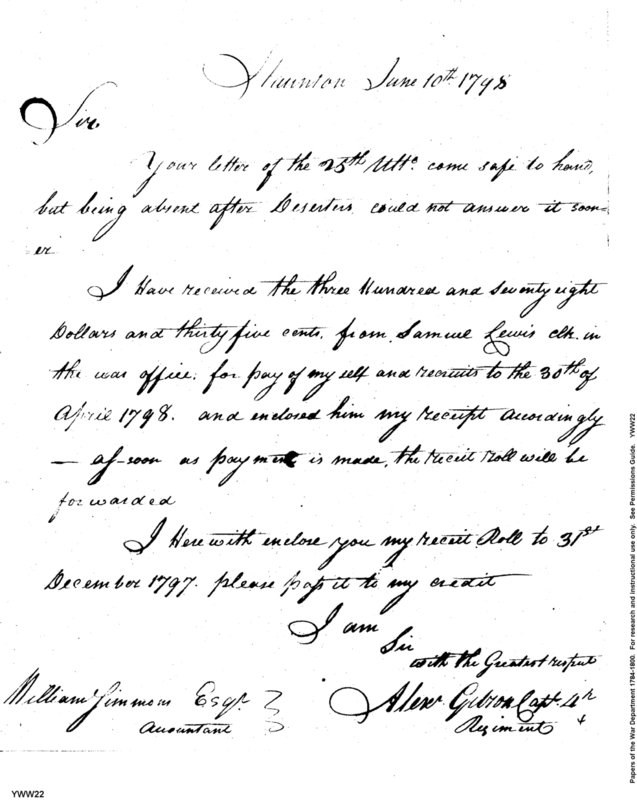 Staunton June 10th 1798
Sir
Your letter of the 25th Ulto. come safe to hand,
but being absent after Deserters could not answer it soon=
er
I Have received the three Hundred and Seventy eight
Dollars and thirty five cents. from Samuel Lewis clk. in
the war office. for pay of my self and recruits to the 30th of
April 1798. and enclosed him my receipt accordingly
— as soon as payment is made, the receit roll will be
forwarded
I Here with enclose you my receit Roll to 31st
December 1797. please pass it to my credit
I am
Sir
with the Greatest respect
William Simmons Esqr.
Alexr Gibson Capt. 4th
Accountant
Regiment
YWW22
Papers of the War Department 1784-1800. For research and instructional use only. See Permissions Guide. YWW22